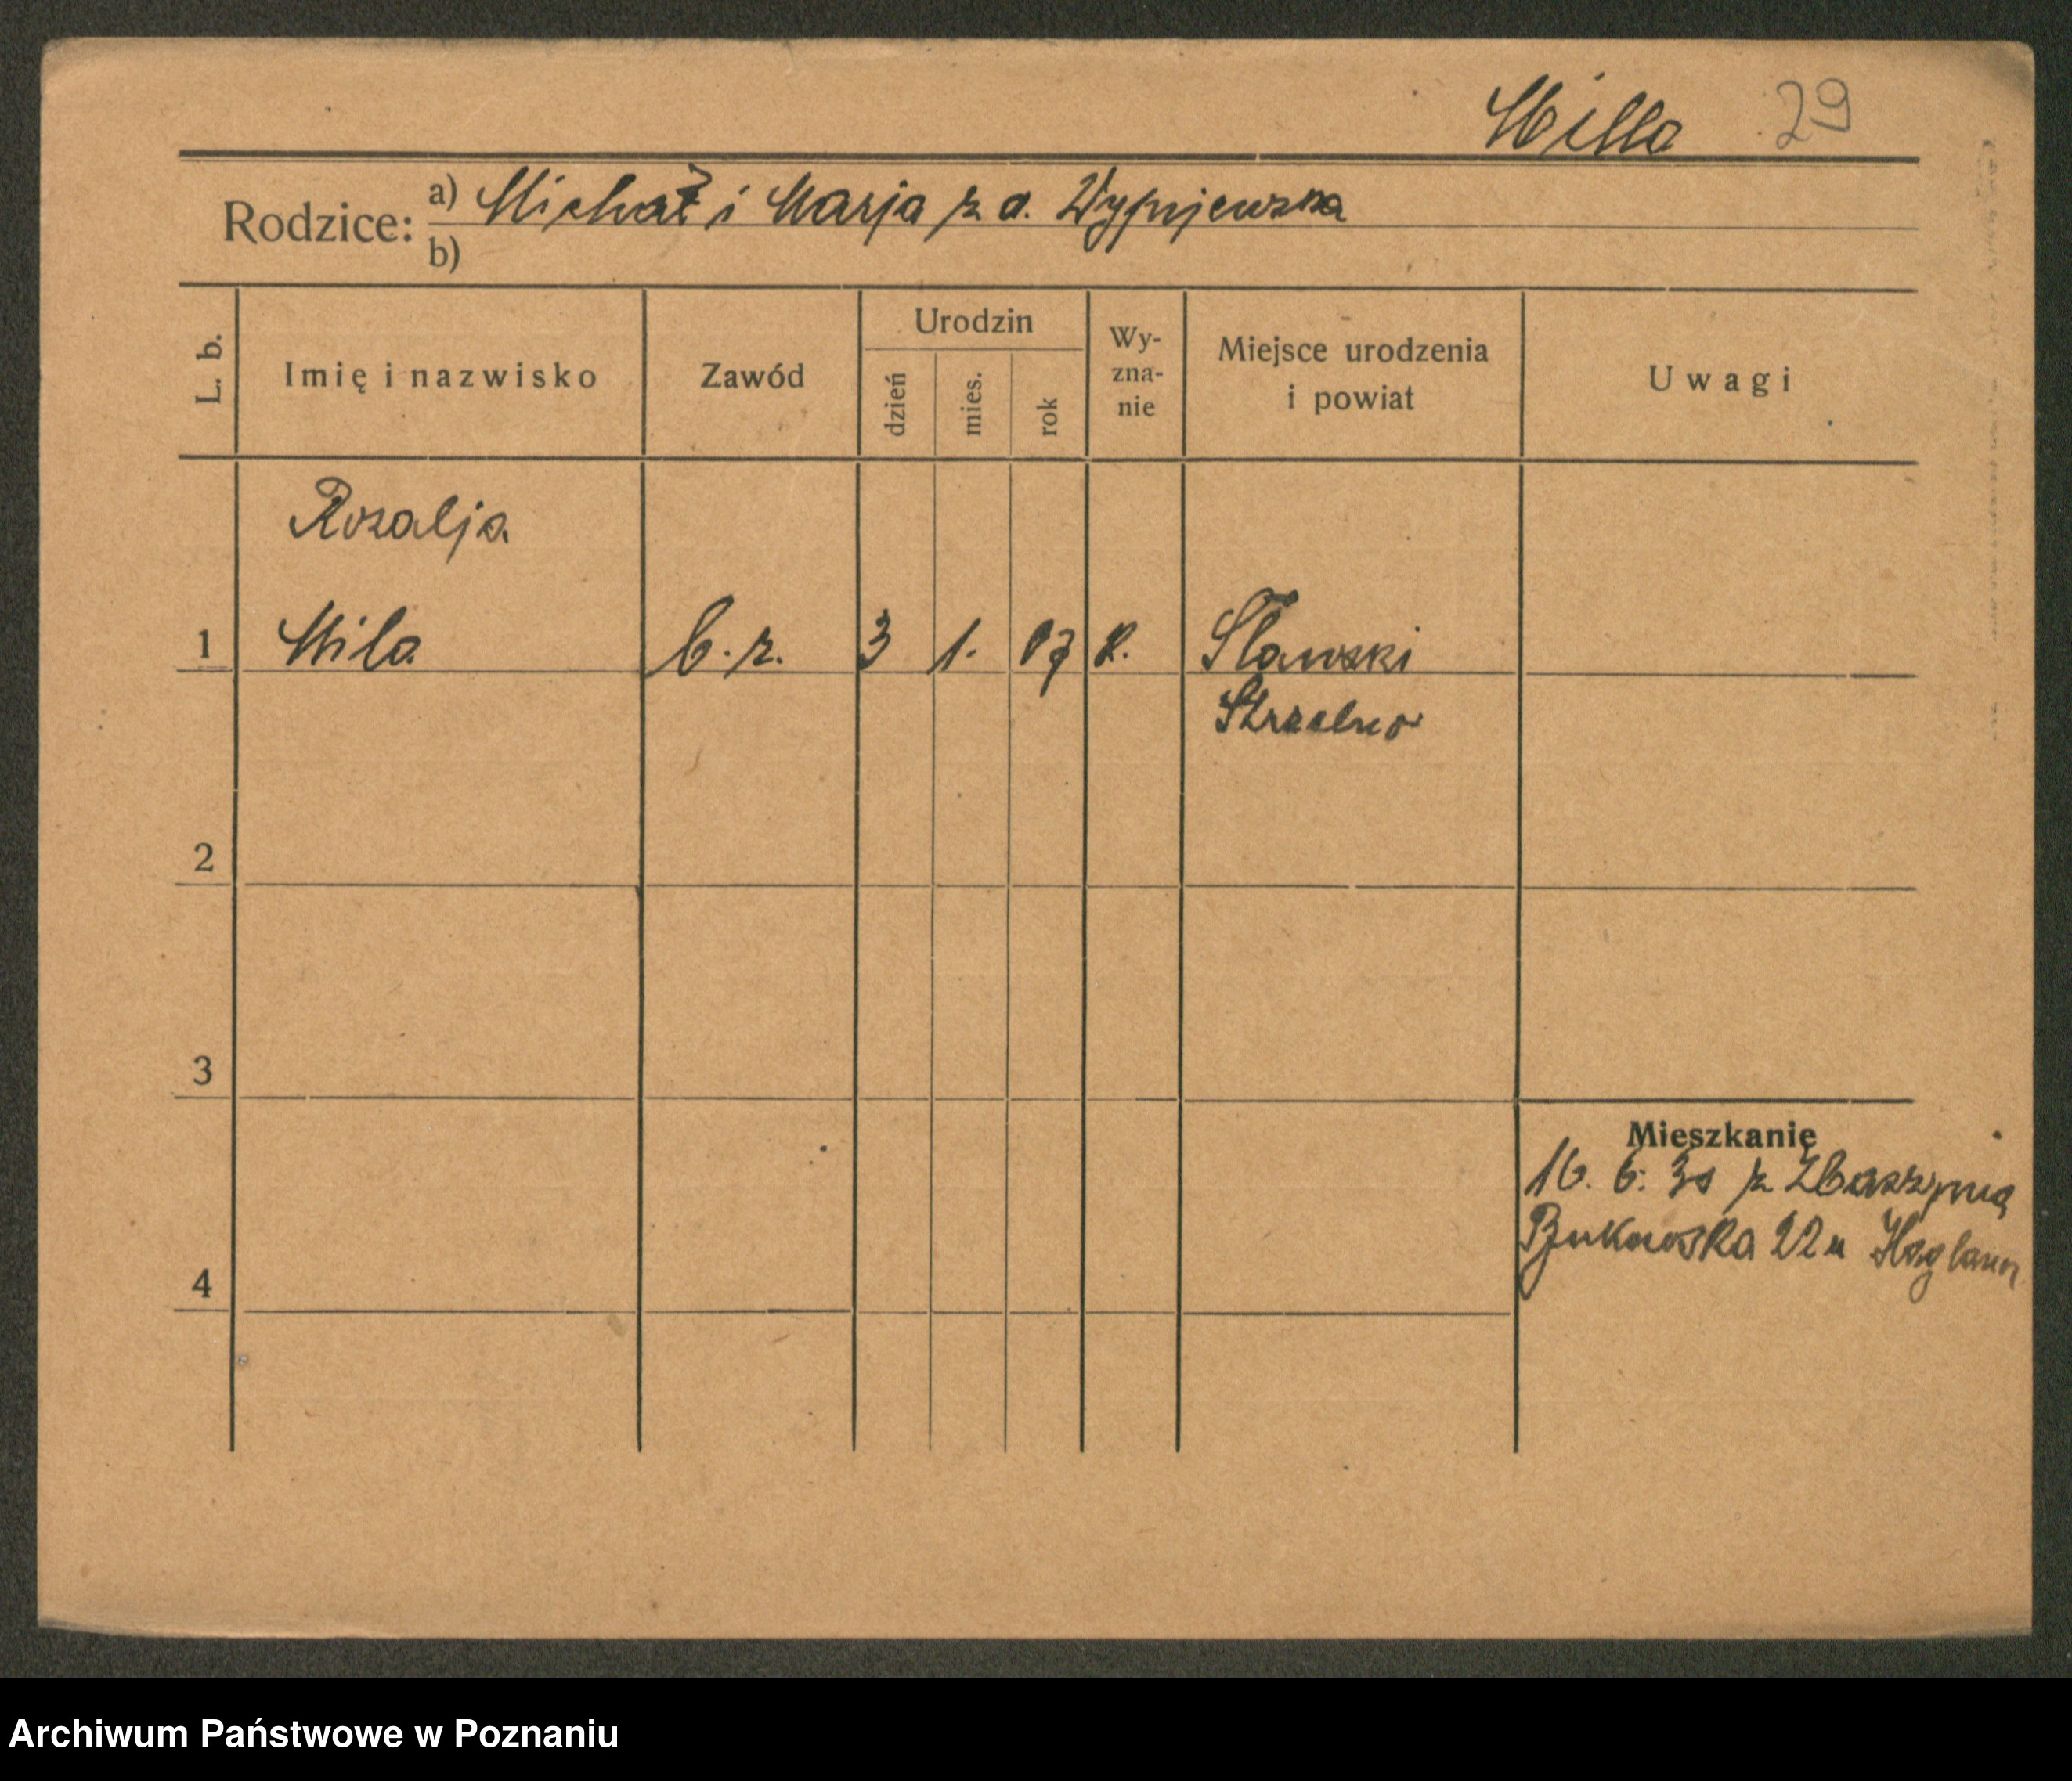 Milla 29
Rodzice: a) Michał i Marja z d. Wypijewska
b)
L. b. Imię i nazwisko Zawód Urodzin dzień mies. rok Wy-zna-nie Miejsce urodzenia i powiat Uwagi
Rozalja
1 Mila b. z. 3 1. 07 R. Sławski
Strzelno
2
3
Mieszkanie
16. 6. 30 z Zbąszynia
Bukowska 22 u
4
Archiwum Państwowe w Poznaniu